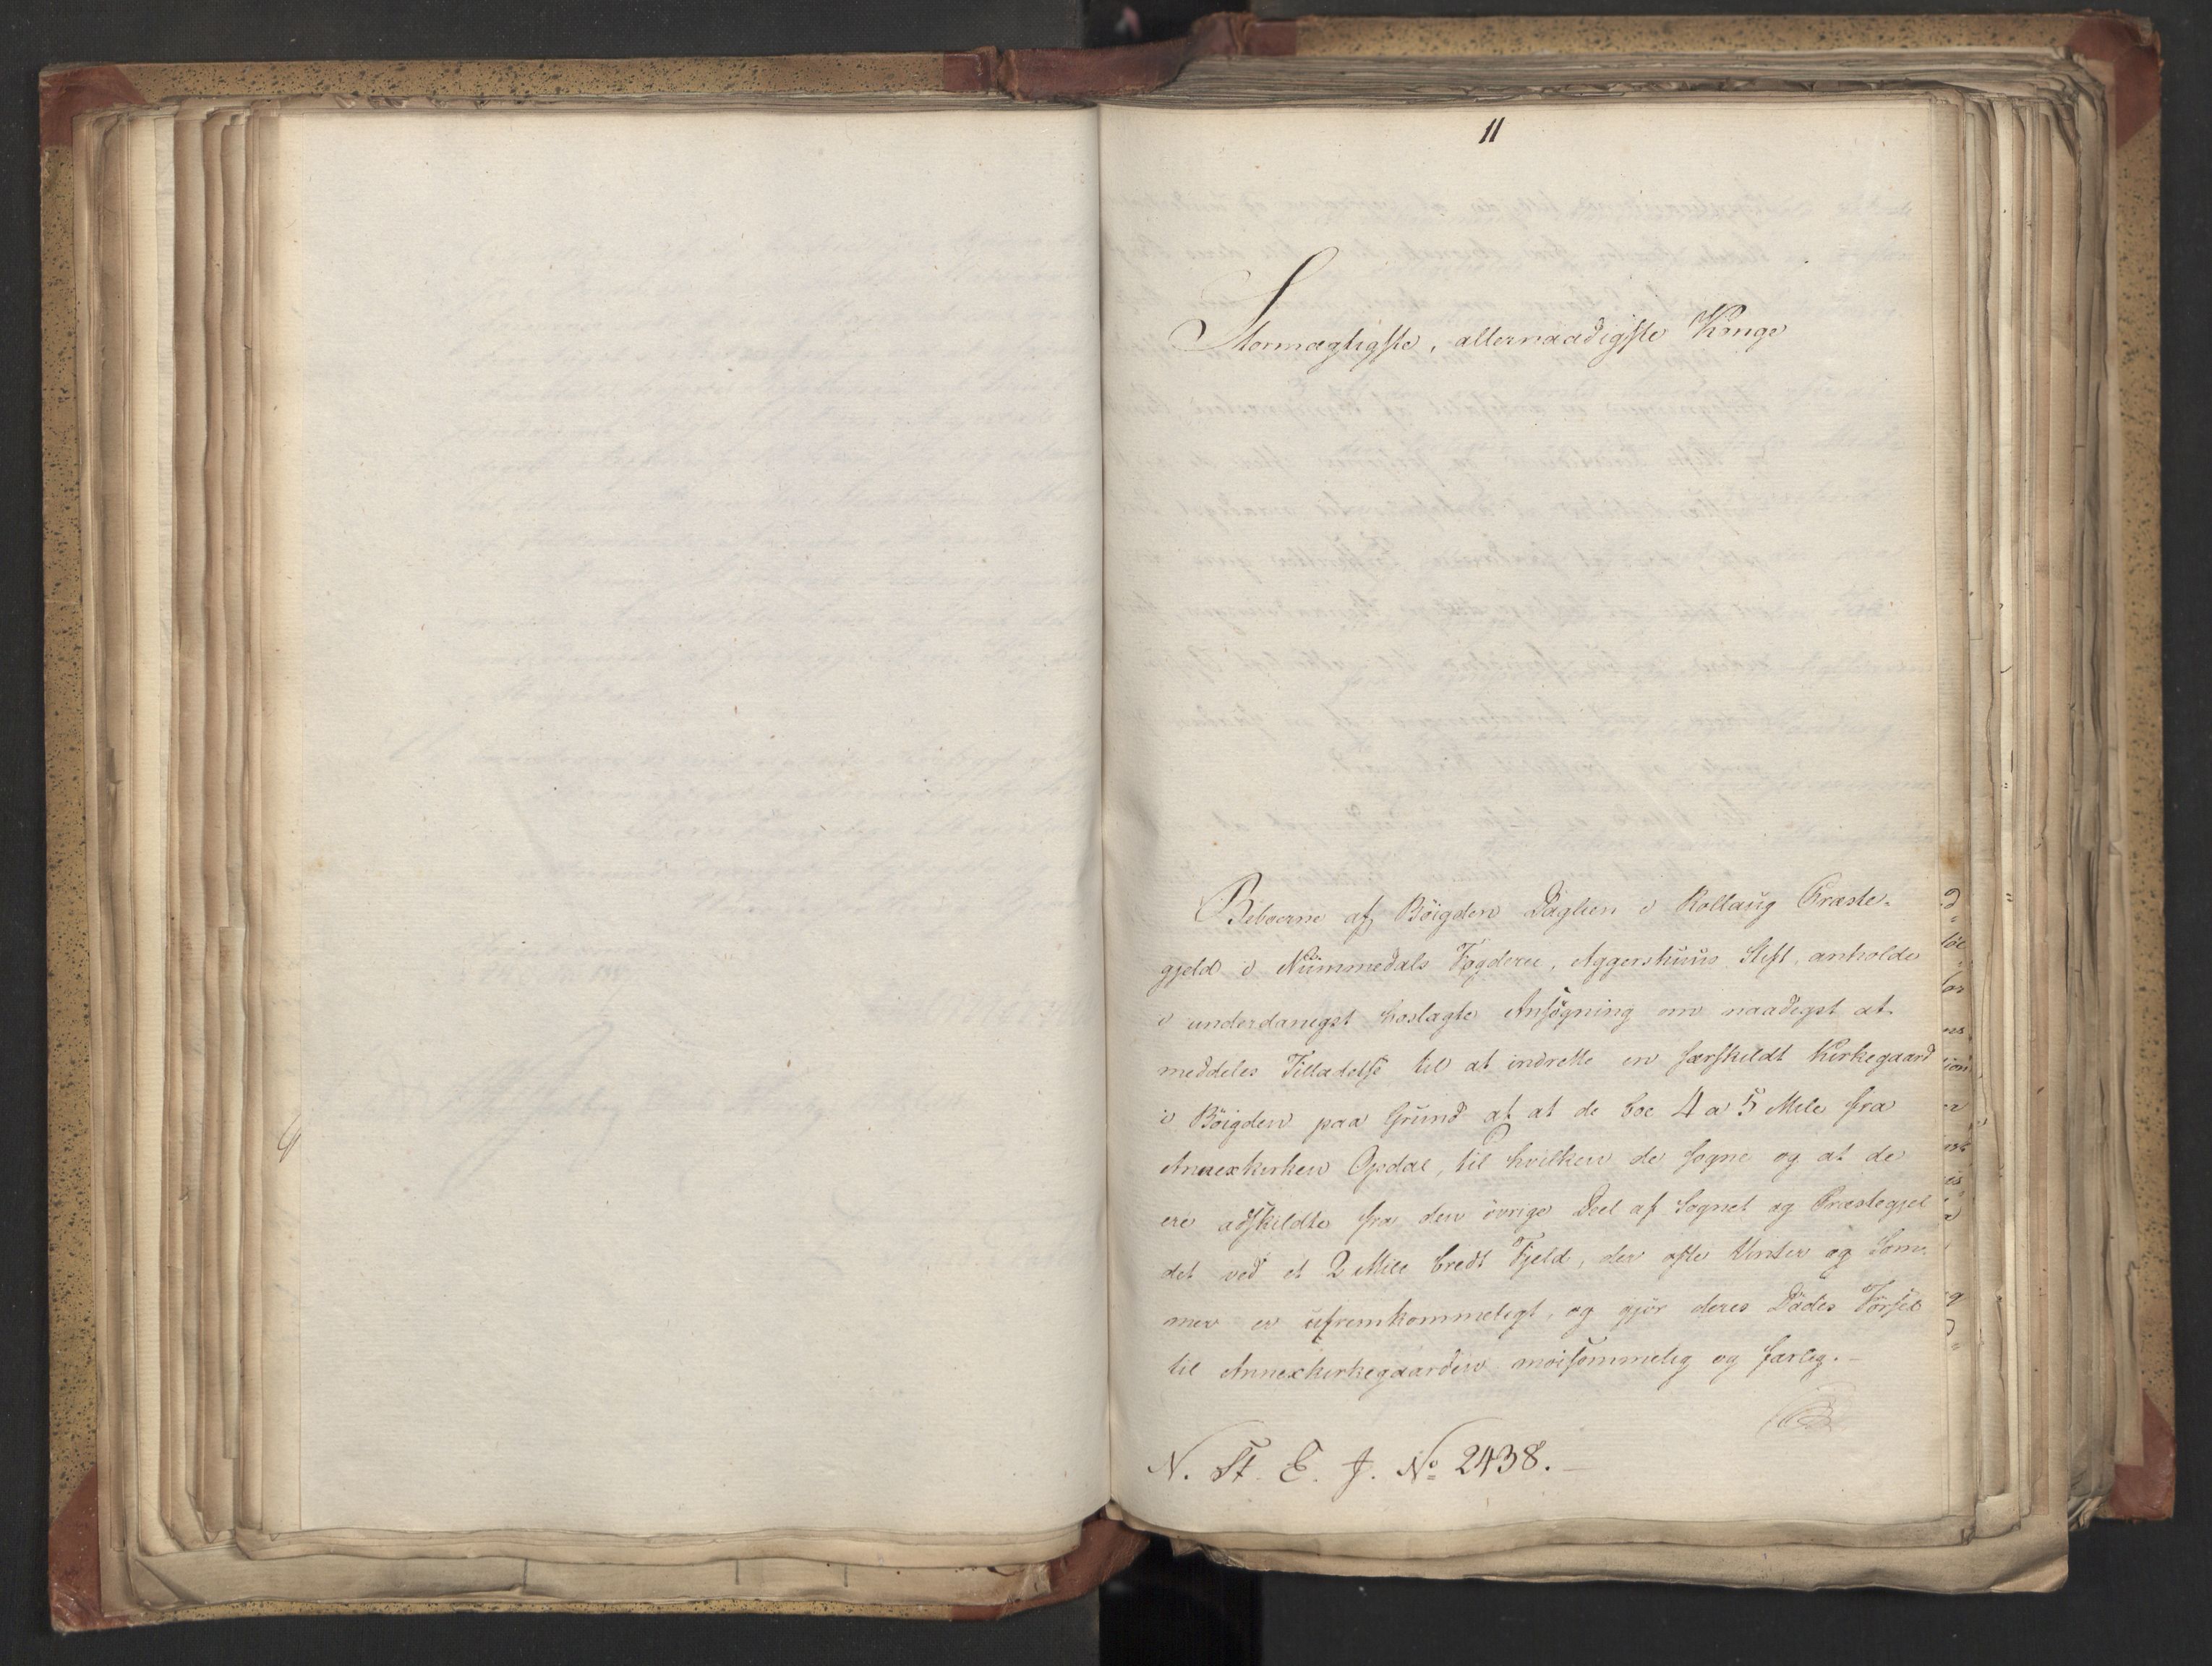 11
Stormægtigste, allernaadigste Konge
Beboerne af Böigden Daglien i Rollaug Præste-
gjeld i Nummedals Fogderie, Aggershuus Stift, anholde
i underdanigst hoslagte Ansögning om naadigst at
meddeles Tilladelse til at indrette en særskildt Kirkegaard
i Böigden paa Grund af at de boe 4 a 5 Mile fra
Annexkirken Opdal, til hvilken de sogne og at de
ere adskildte fra den övrige Deel af Sognet og Præstegjel
det ved et 2 Mile bredt Fjeld, der ofte Vinter og Som-
mer er ufremkommeligt, og gjör deres Dödes Försel
til Annexkirkegaarden möisommelig og farlig. —
N. St. E. J. No 2438. —